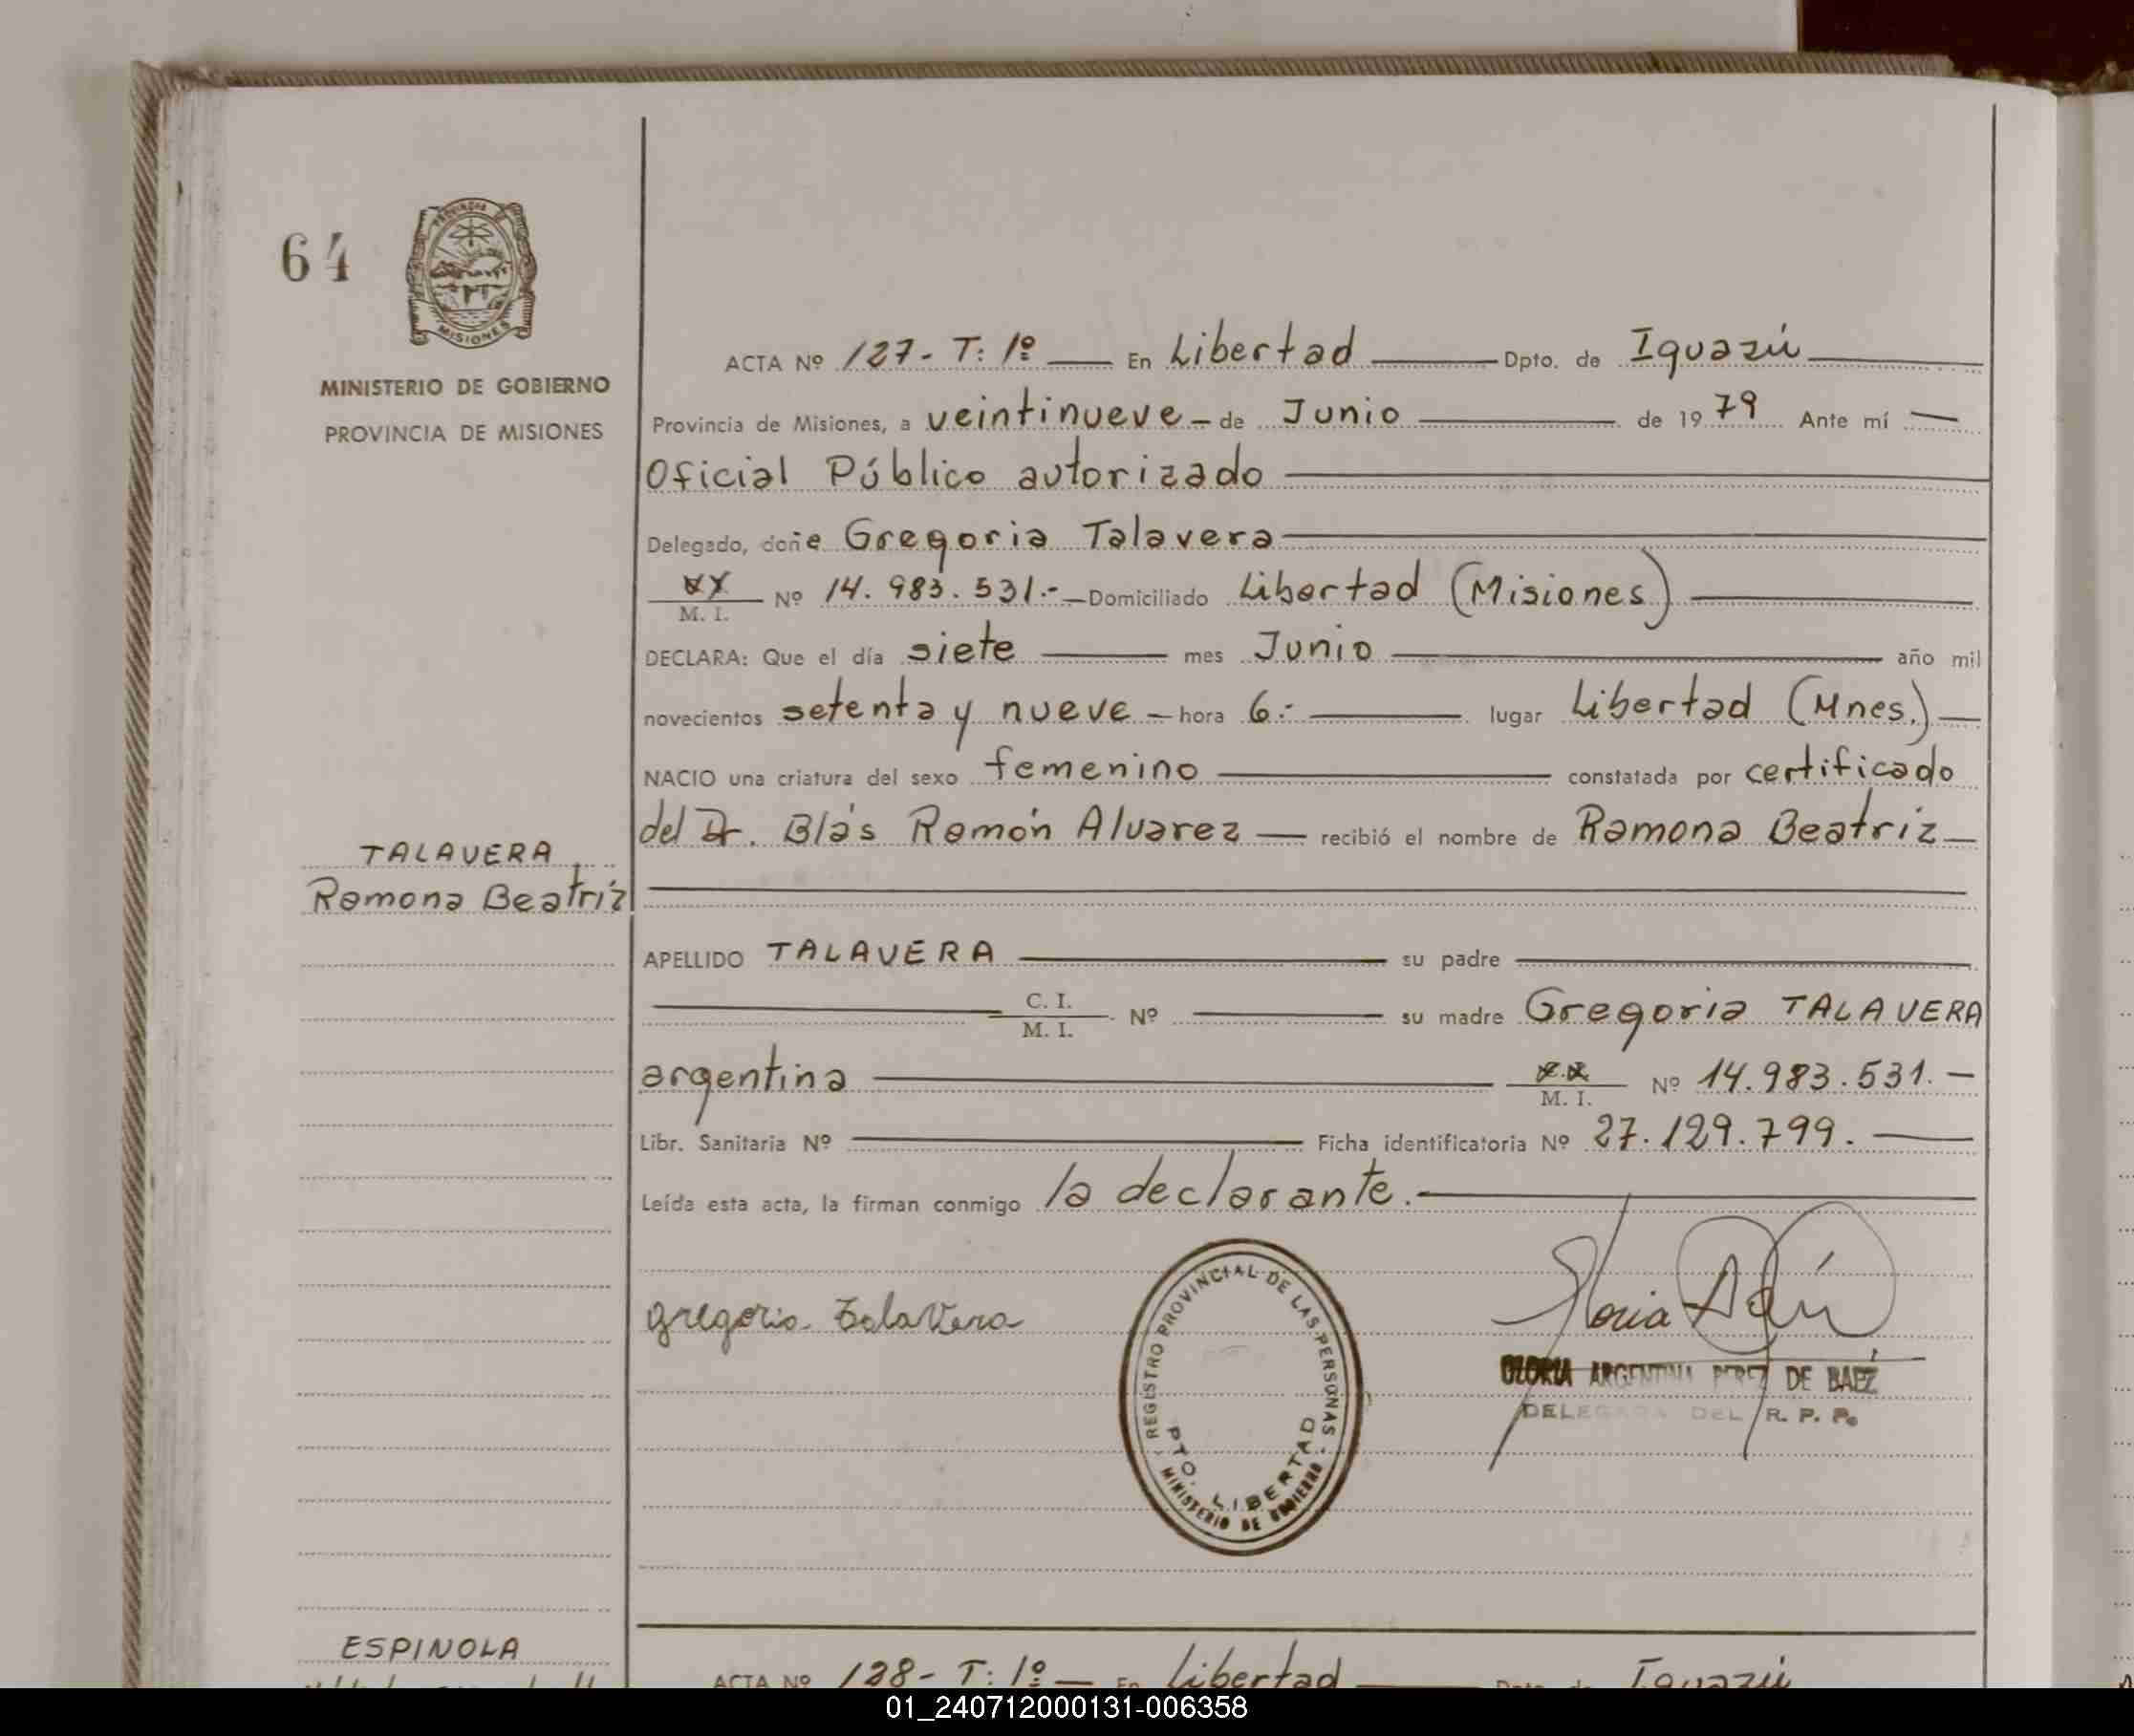 64
PROVINCIA DE
MISIONES
MINISTERIO DE GOBIERNO
PROVINCIA DE MISIONES
ACTA Nº 127- T: 1º En Libertad Dpto. de Iguazú
Provincia de Misiones, a veintinueve - de Junio de 1979 Ante mí
Oficial Público autorizado
Delegado, doña Gregoria Talavera
M. I. Nº 14.983.531.- Domiciliado Libertad (Misiones)
DECLARA: Que el día siete mes Junio año mil
novecientos setenta y nueve - hora 6:- lugar Libertad (Mnes.)
NACIO una criatura del sexo femenino constatada por certificado
del Dr. Blás Ramón Alvarez recibió el nombre de Ramona Beatriz
TALAVERA
Ramona Beatriz
APELLIDO TALAVERA su padre
C. I.
M. I. Nº su madre Gregoria TALAVERA
argentina M. I. Nº 14.983.531.-
Libr. Sanitaria Nº Ficha identificatoria Nº 27.129.799.
Leída esta acta, la firman conmigo la declarante.
Gregoria Talavera
REGISTRO PROVINCIAL DE LAS PERSONAS
PTO. LIBERTAD
MINISTERIO DE GOBIERNO
GLORIA ARGENTINA PEREZ DE BAEZ
DELEGADA DEL R. P. P.
ESPINOLA
ACTA Nº 128- T: 1º En Libertad Dpto. de Iguazú
01_240712000131-006358